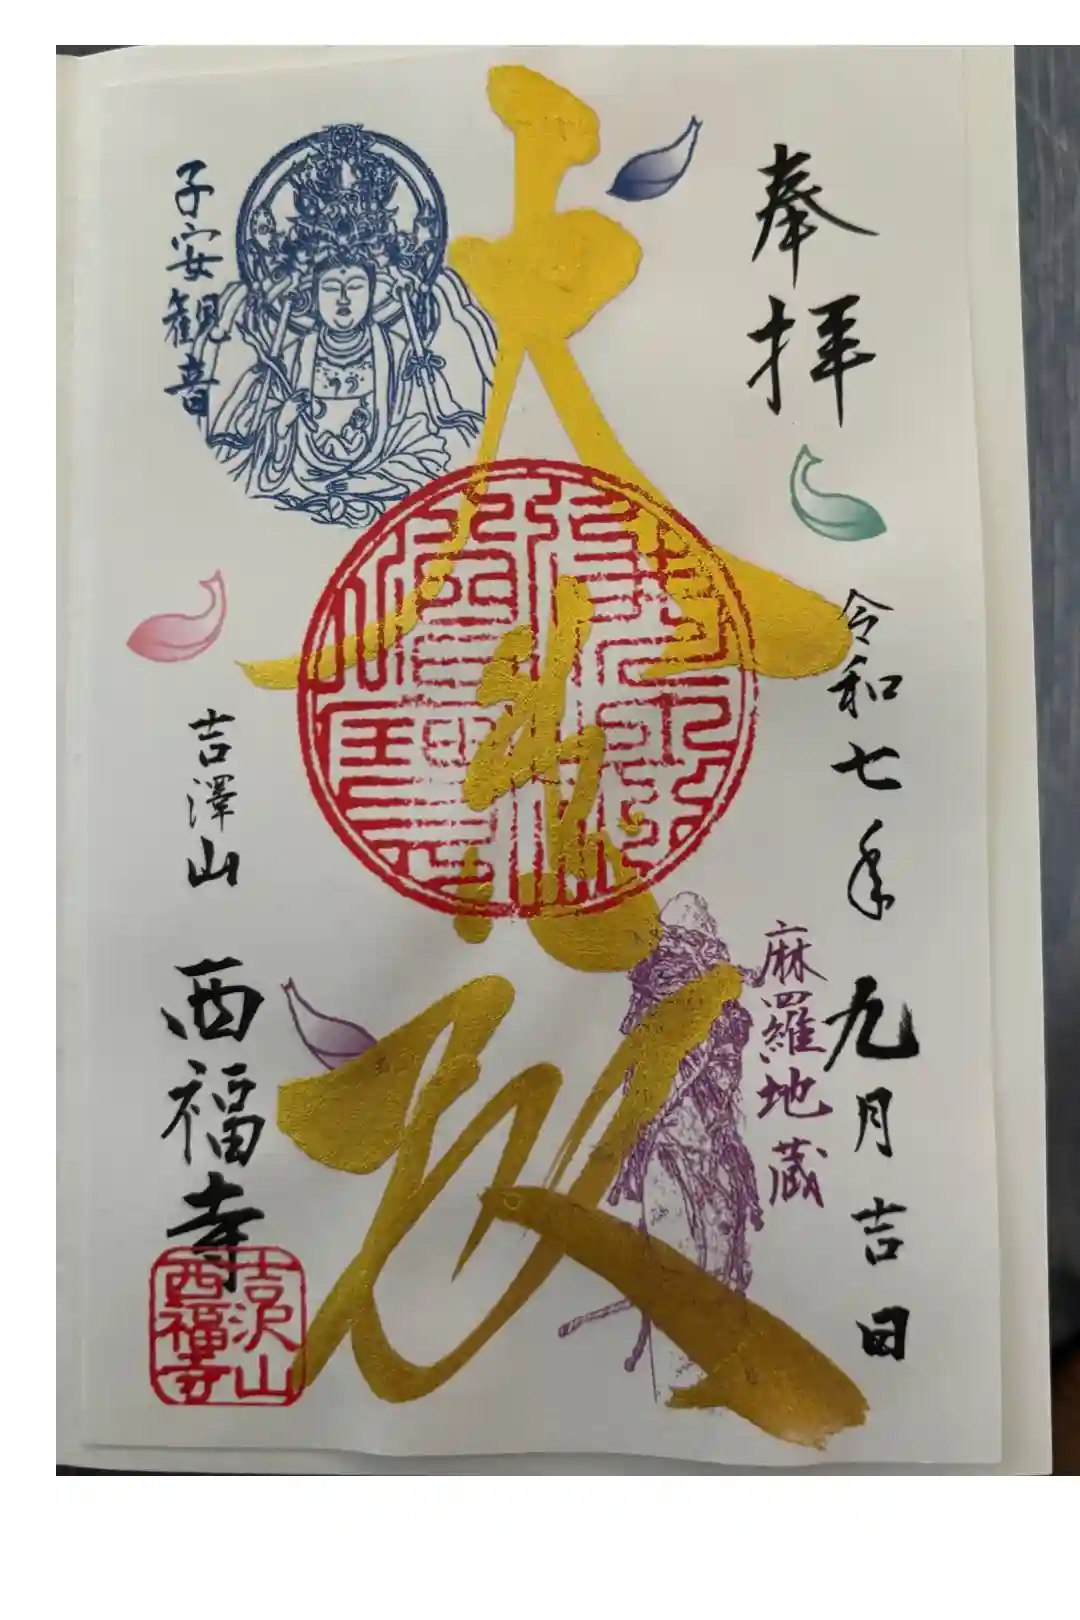 奉拝
令和七年九月吉日
麻羅地蔵
大悲殿
子安観音
吉澤山
西福寺
吉沢山
西福寺